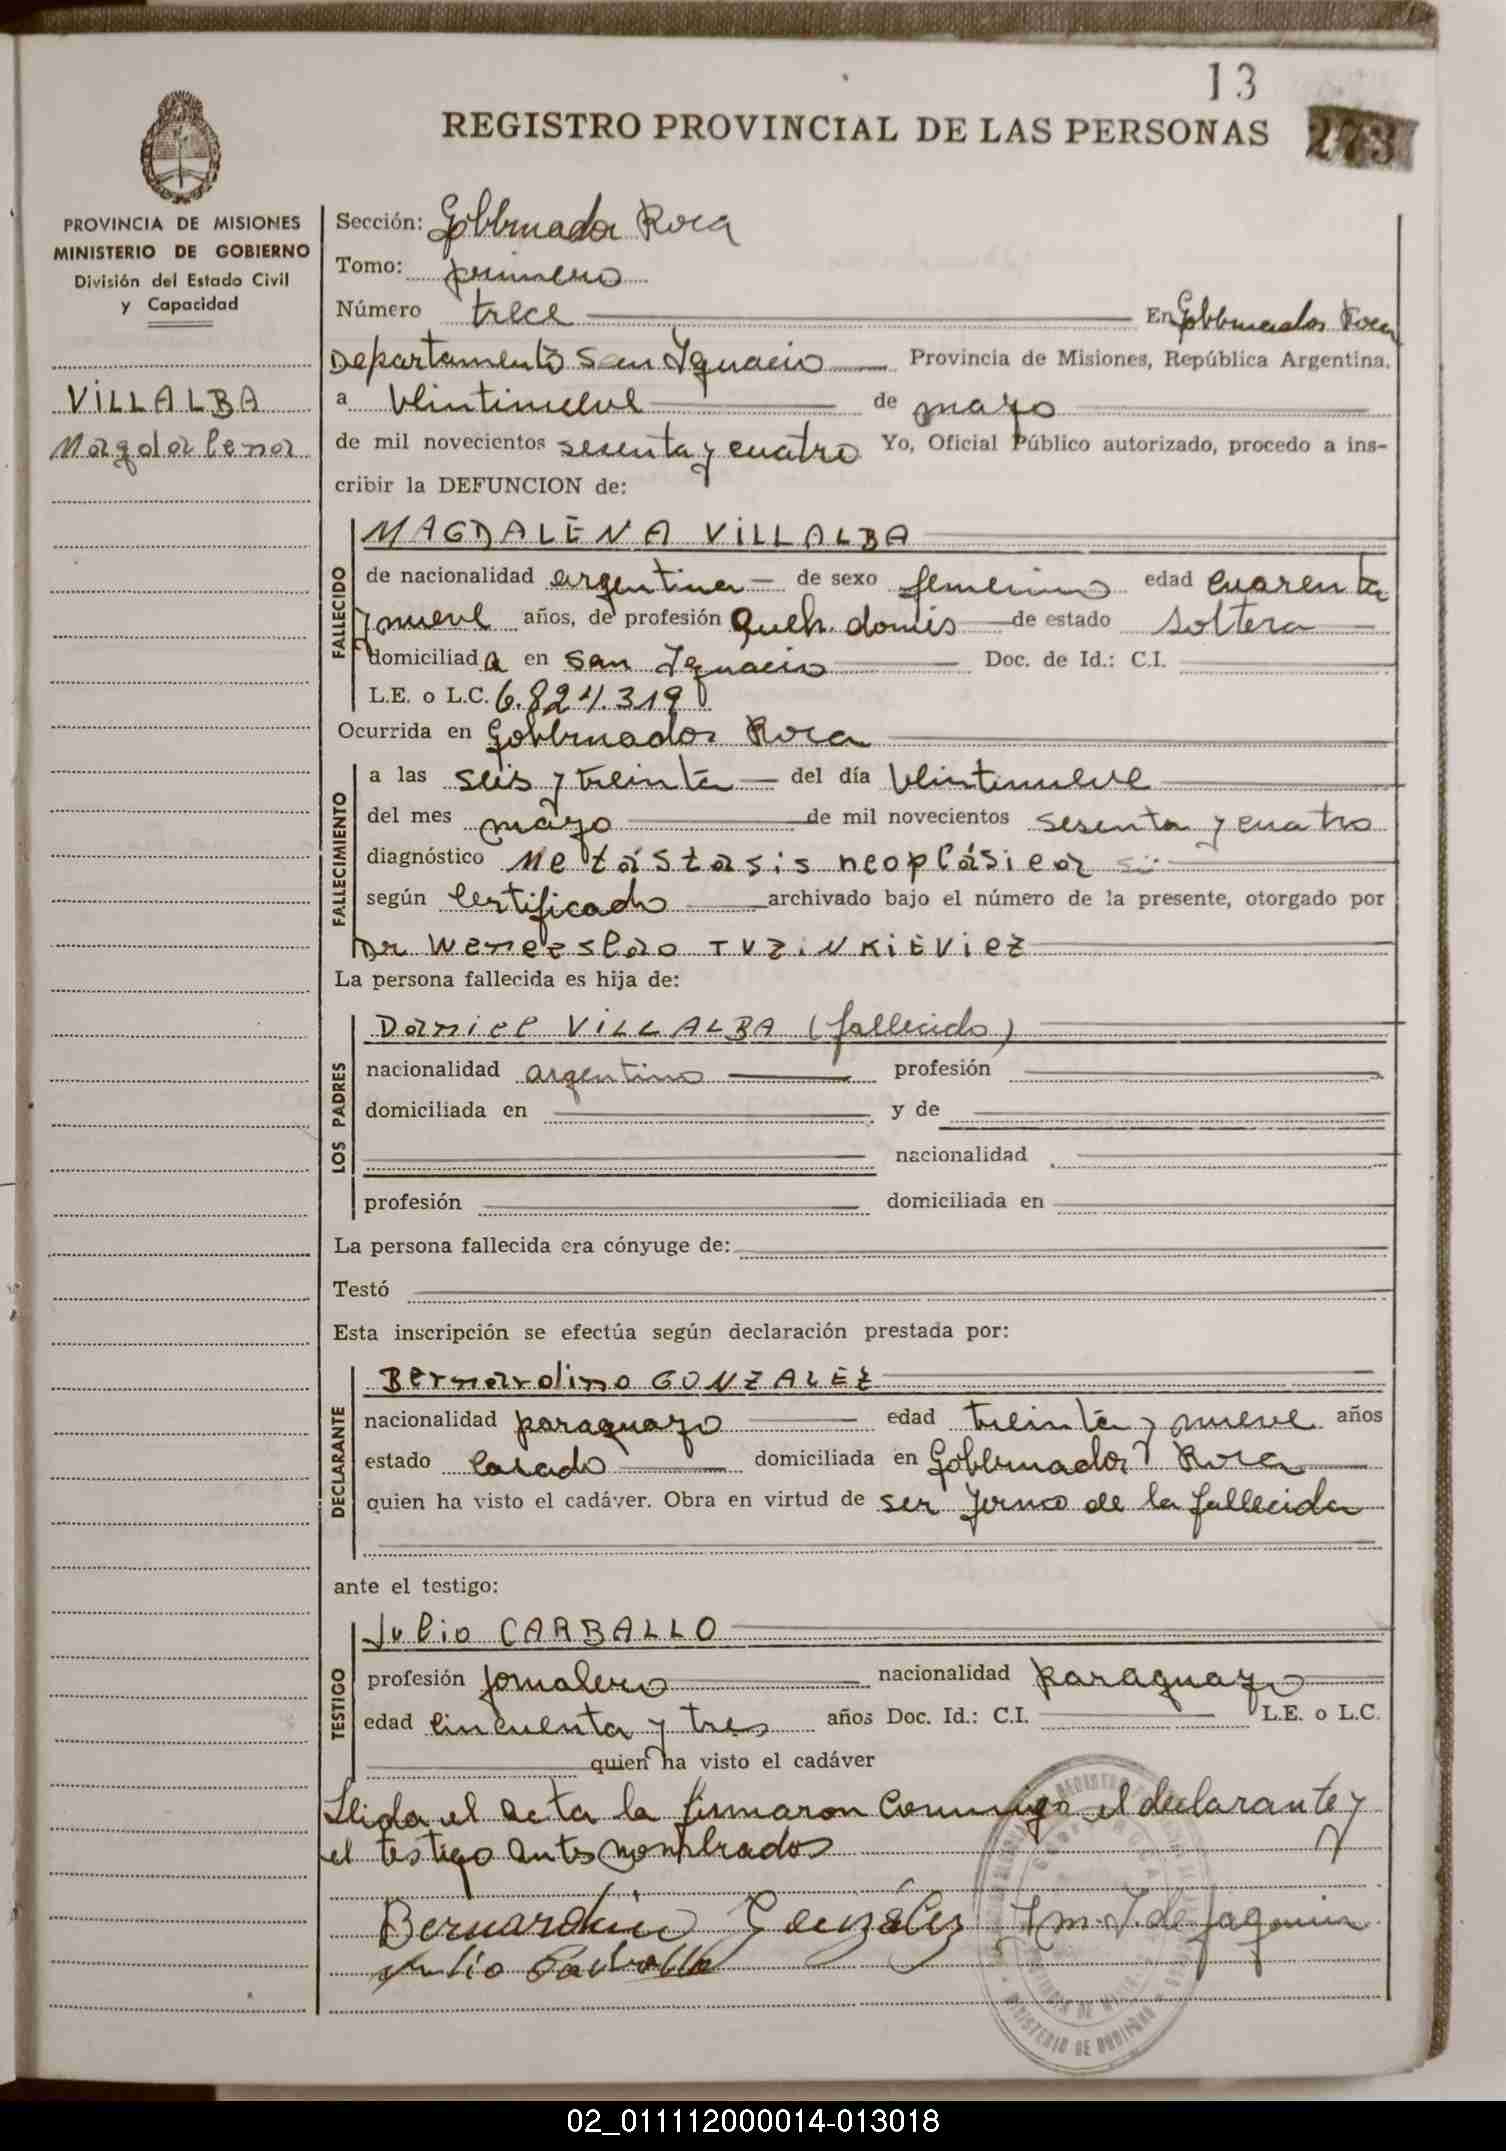 13
REGISTRO PROVINCIAL DE LAS PERSONAS 273
PROVINCIA DE MISIONES
MINISTERIO DE GOBIERNO
División del Estado Civil
y Capacidad
VILLALBA
Magdalena
Sección: Gobernador Roca
Tomo: primero
Número trece En Gobernador Roca
Departamento San Ignacio Provincia de Misiones, República Argentina.
a veintinueve de mayo
de mil novecientos sesenta y cuatro Yo, Oficial Público autorizado, procedo a ins-
cribir la DEFUNCION de:
FALLECIDO
MAGDALENA VILLALBA
de nacionalidad argentina de sexo femenino edad cuarenta
y nueve años, de profesión Queh. domés de estado soltera
domiciliada en San Ignacio Doc. de Id.: C.I.
L.E. o L.C. 6.824.319
Ocurrida en Gobernador Roca
FALLECIMIENTO
a las seis y treinta del día veintinueve
del mes mayo de mil novecientos sesenta y cuatro
diagnóstico Metástasis neoplásica
según certificado archivado bajo el número de la presente, otorgado por
Dr Wenceslao TUZINKIEVICZ
La persona fallecida es hija de:
LOS PADRES
Daniel VILLALBA (fallecido)
nacionalidad argentino profesión
domiciliada en y de
nacionalidad
profesión domiciliada en
La persona fallecida era cónyuge de:
Testó
Esta inscripción se efectúa según declaración prestada por:
DECLARANTE
Bernardino GONZALEZ
nacionalidad paraguayo edad treinta y nueve años
estado casado domiciliada en Gobernador Roca
quien ha visto el cadáver. Obra en virtud de ser yerno de la fallecida
ante el testigo:
TESTIGO
Julio CARBALLO
profesión jornalero nacionalidad paraguayo
edad cincuenta y tres años Doc. Id.: C.I. L.E. o L.C.
quien ha visto el cadáver
Leida el acta la firmaron conmigo el declarante y
el testigo antes nombrados
Bernardino González
Julio Carballo
MINISTERIO DE GOBIERNO
02_011112000014-013018